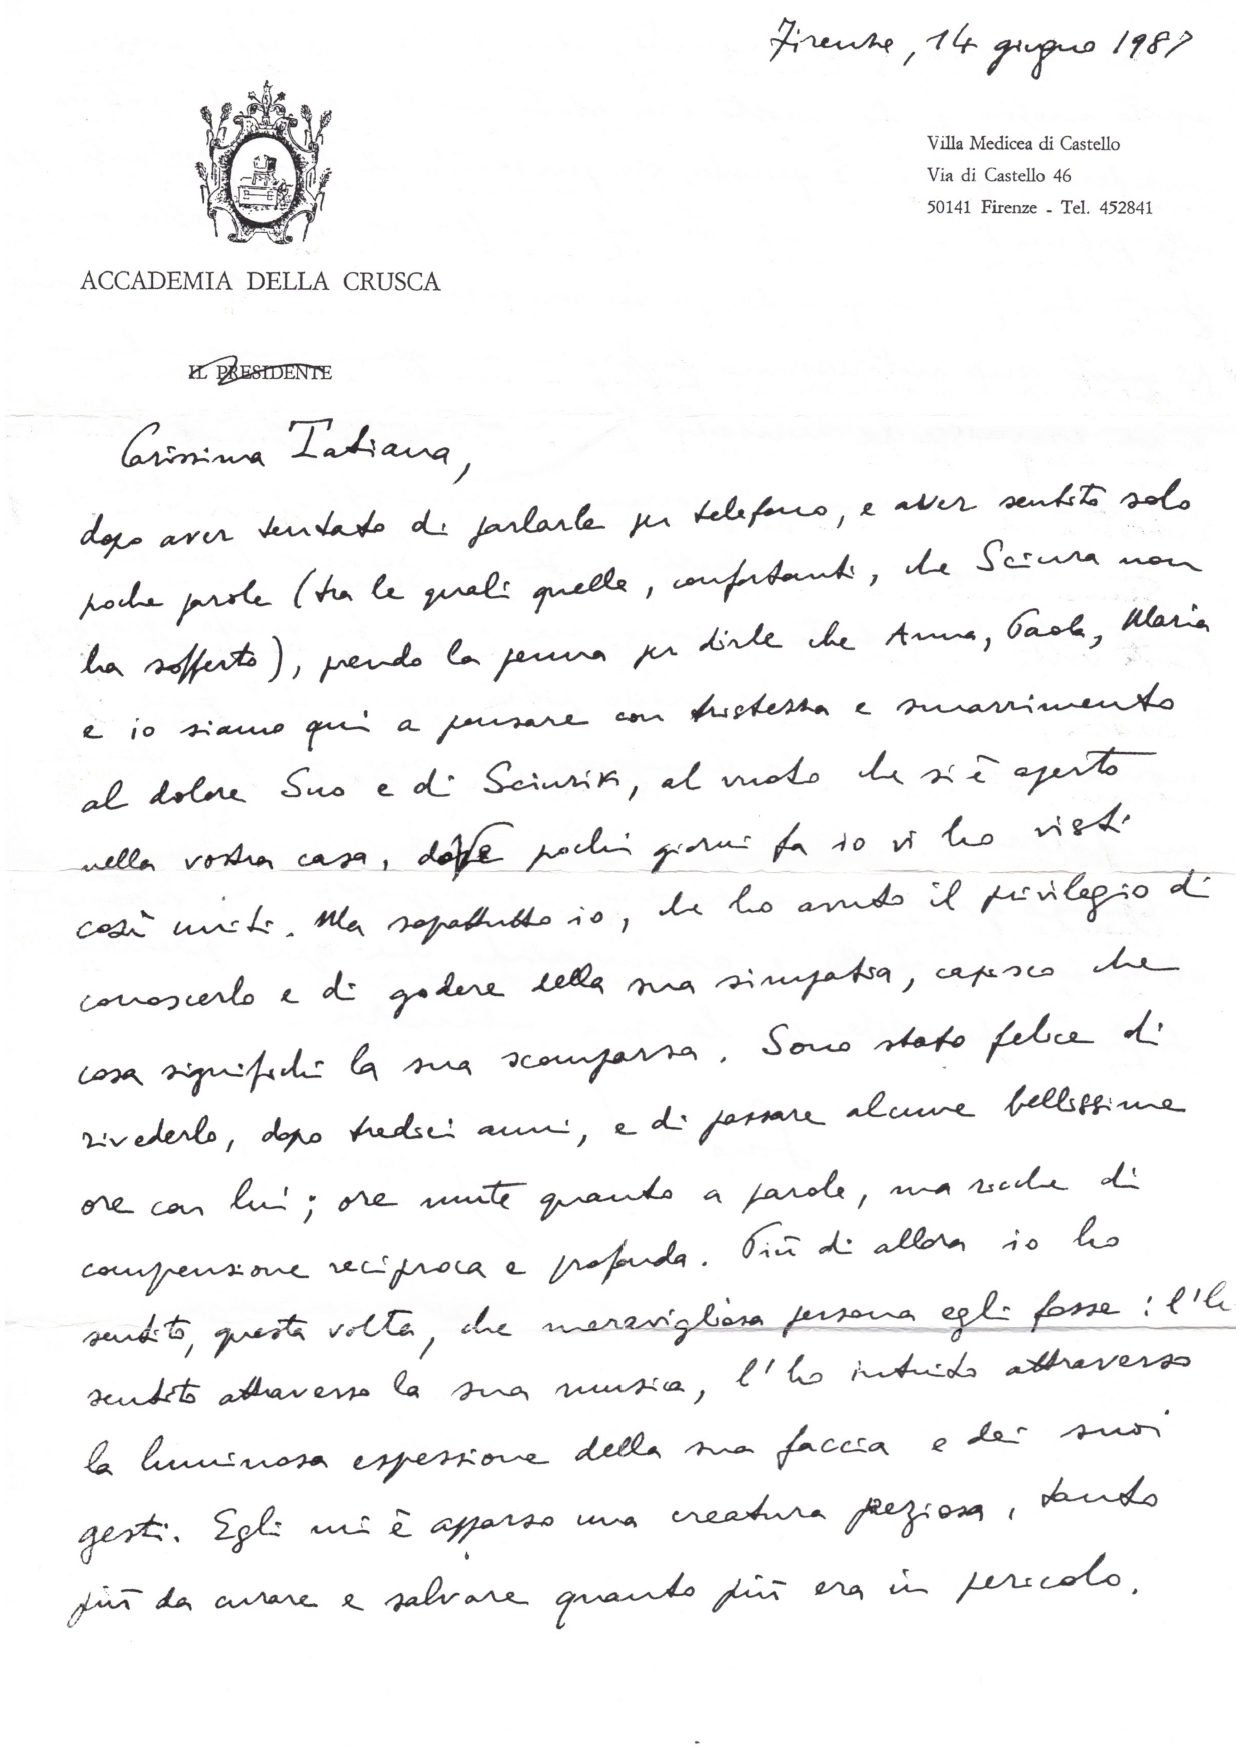 Firenze, 14 giugno 1987
Villa Medicea di Castello
Via di Castello 46
50141 Firenze - Tel. 452841
ACCADEMIA DELLA CRUSCA
IL PRESIDENTE
Carissima Tatiana,
dopo aver tentato di parlarle per telefono, e aver sentito solo
poche parole (tra le quali quelle, confortanti, che Sciura non
ha sofferto), prendo la penna per dirle che Anna, Paola, Maria
e io siamo qui a pensare con tristezza e smarrimento
al dolore Suo e di Sciurik, al vuoto che si è aperto
nella vostra casa, dove pochi giorni fa io vi ho visti
così uniti. Ma soprattutto io, che ho avuto il privilegio di
conoscerlo e di godere della sua simpatia, capisco che
cosa significhi la sua scomparsa. Sono stato felice di
rivederlo, dopo tredici anni, e di passare alcune bellissime
ore con lui; ore mute quanto a parole, ma ricche di
comprensione reciproca e profonda. Più di allora io ho
sentito, questa volta, che meravigliosa persona egli fosse: l'h
sentito attraverso la sua musica, l'ho intuito attraverso
la luminosa espressione della sua faccia e dei suoi
gesti. Egli mi è apparso una creatura preziosa, tanto
più da curare e salvare quanto più era in pericolo.